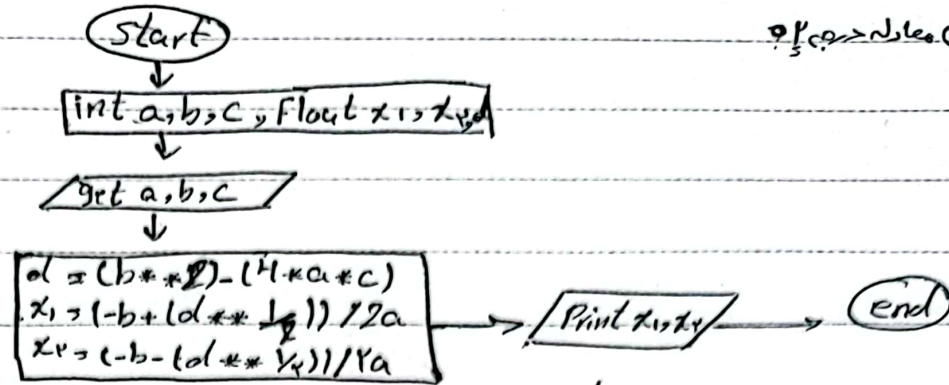 معادله درجه ۲
start
int a,b,c, Float x₁, x₂,d
get a,b,c
d = (b**2)-(4*a*c)
x₁ = (-b+(d ** 1/2)) /2a
x₂ = (-b-(d ** 1/۲))/۲a
Print x₁,x₂
end